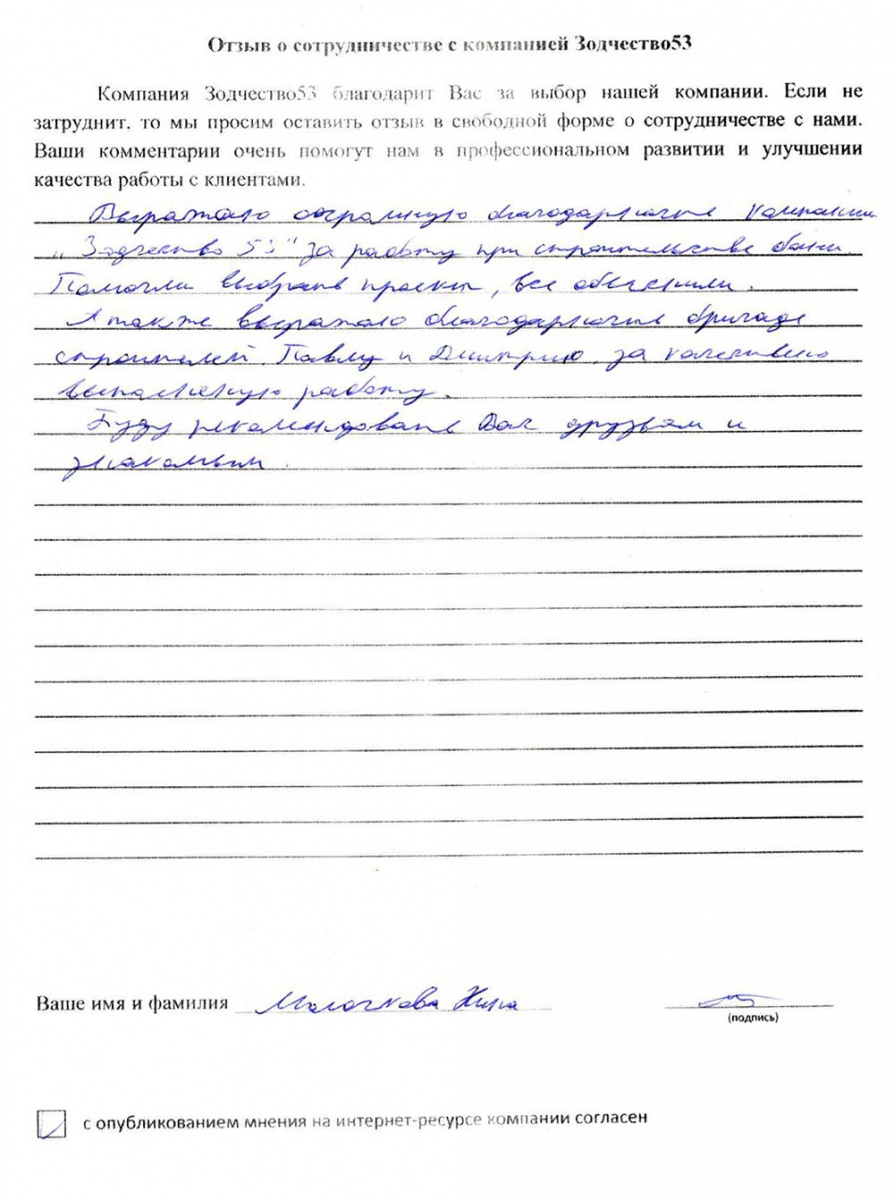 Отзыв о сотрудничестве с компанией Зодчество53
Компания Зодчество53 благодарит Вас за выбор нашей компании. Если не
затруднит, то мы просим оставить отзыв в свободной форме о сотрудничестве с нами.
Ваши комментарии очень помогут нам в профессиональном развитии и улучшении
качества работы с клиентами.
Выражаю огромную благодарность компании
"Зодчество 53" за работу при строительстве бани.
Помогли выбрать проект, все объяснили.
А также выражаю благодарность бригаде
строителей Павлу и Дмитрию, за качествено
выполненную работу.
Буду рекомендовать Вас друзьям и
знакомым.
Ваше имя и фамилия Молочкова
(подпись)
с опубликованием мнения на интернет-ресурсе компании согласен